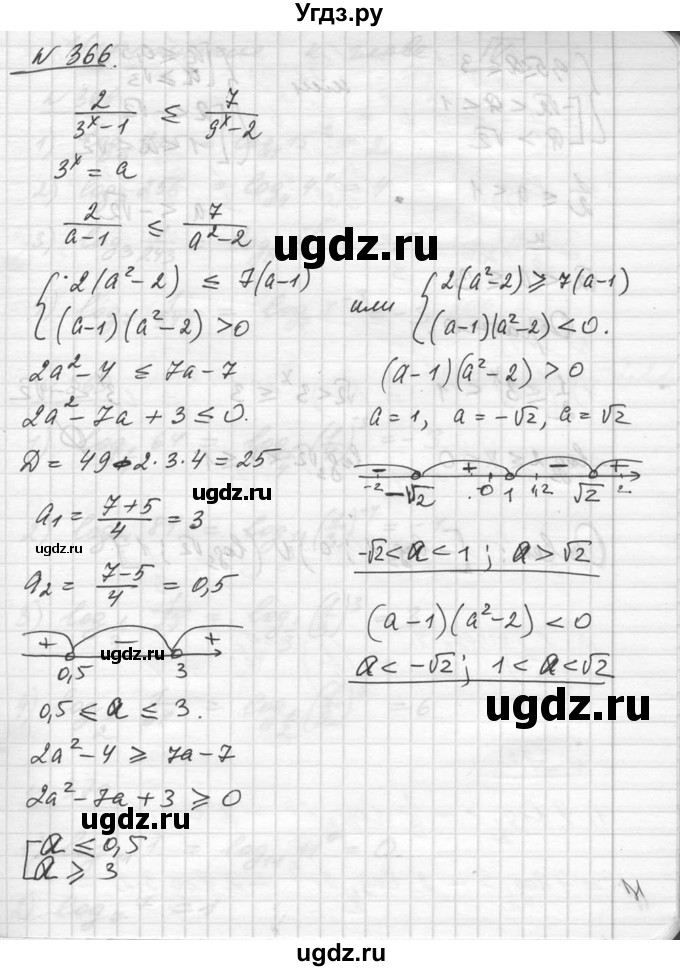 Угдз.ру
N 366.
2/(3^x-1) ≤ 7/(9^x-2)
3^x = a
2/(a-1) ≤ 7/(a²-2)
ugdz.ru
{ 2(a²-2) ≤ 7(a-1)
(a-1)(a²-2) > 0
или { 2(a²-2) ≥ 7(a-1)
(a-1)(a²-2) < 0.
2a²-4 ≤ 7a-7
2a²-7a+3 ≤ 0.
D = 49-2·3·4 = 25
a₁ = (7+5)/4 = 3
ugdz.ru
a₂ = (7-5)/4 = 0,5
+ - +
ugdz.ru
0,5 3
0,5 ≤ a ≤ 3.
2a²-4 ≥ 7a-7
2a²-7a+3 ≥ 0
ugdz.ru
[ a ≤ 0,5
a ≥ 3
(a-1)(a²-2) > 0
a=1, a=-√2, a=√2
- + - +
-2 -√2 0 1 1,2 √2 2
ugdz.ru
-√2 < a < 1; a > √2
(a-1)(a²-2) < 0
a < -√2; 1 < a < √2
ugdz.ru
ugdz.ru
ugdz.ru